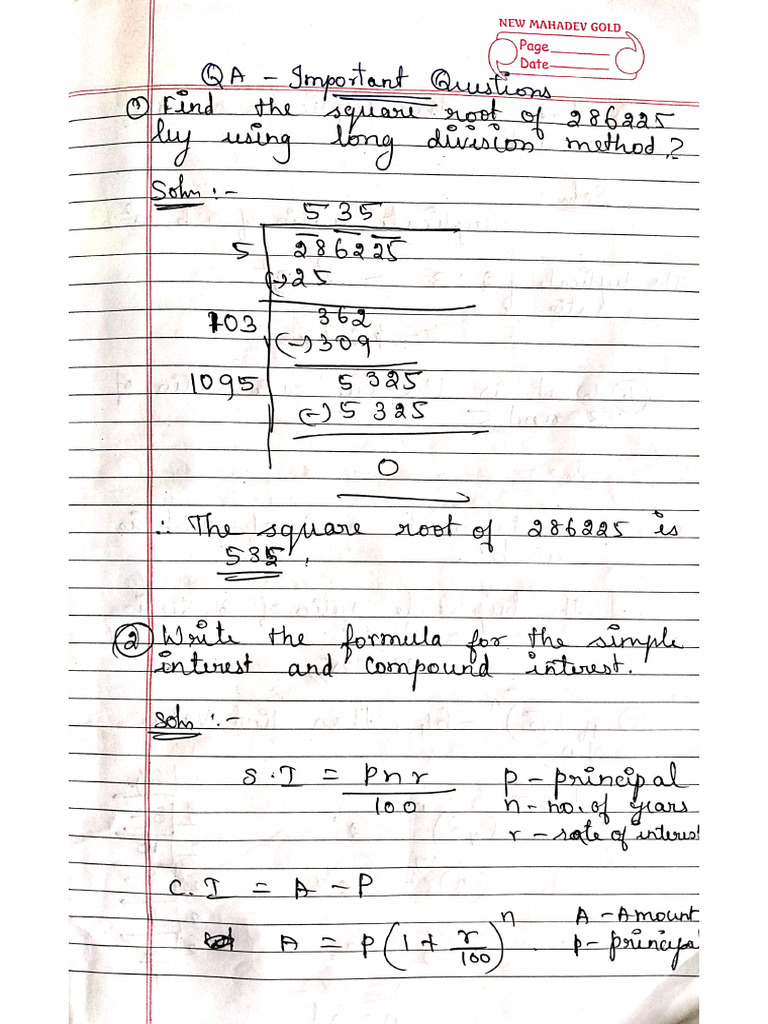 NEW MAHADEV GOLD
Page
Date
QA - Important Questions
① Find the square root of 286225
by using long division method?
Soln :-
5 35
5 286225
(-) 25
103 362
(-) 309
1095 5 325
(-) 5 325
0
∴ The square root of 286225 is
535.
② Write the formula for the simple
interest and compound interest.
Soln :-
S.I = pnr/100 p - principal
n - no. of years
r - rate of interest
C.I = A - P
A = p(1 + r/100)^n A - Amount
p - principal